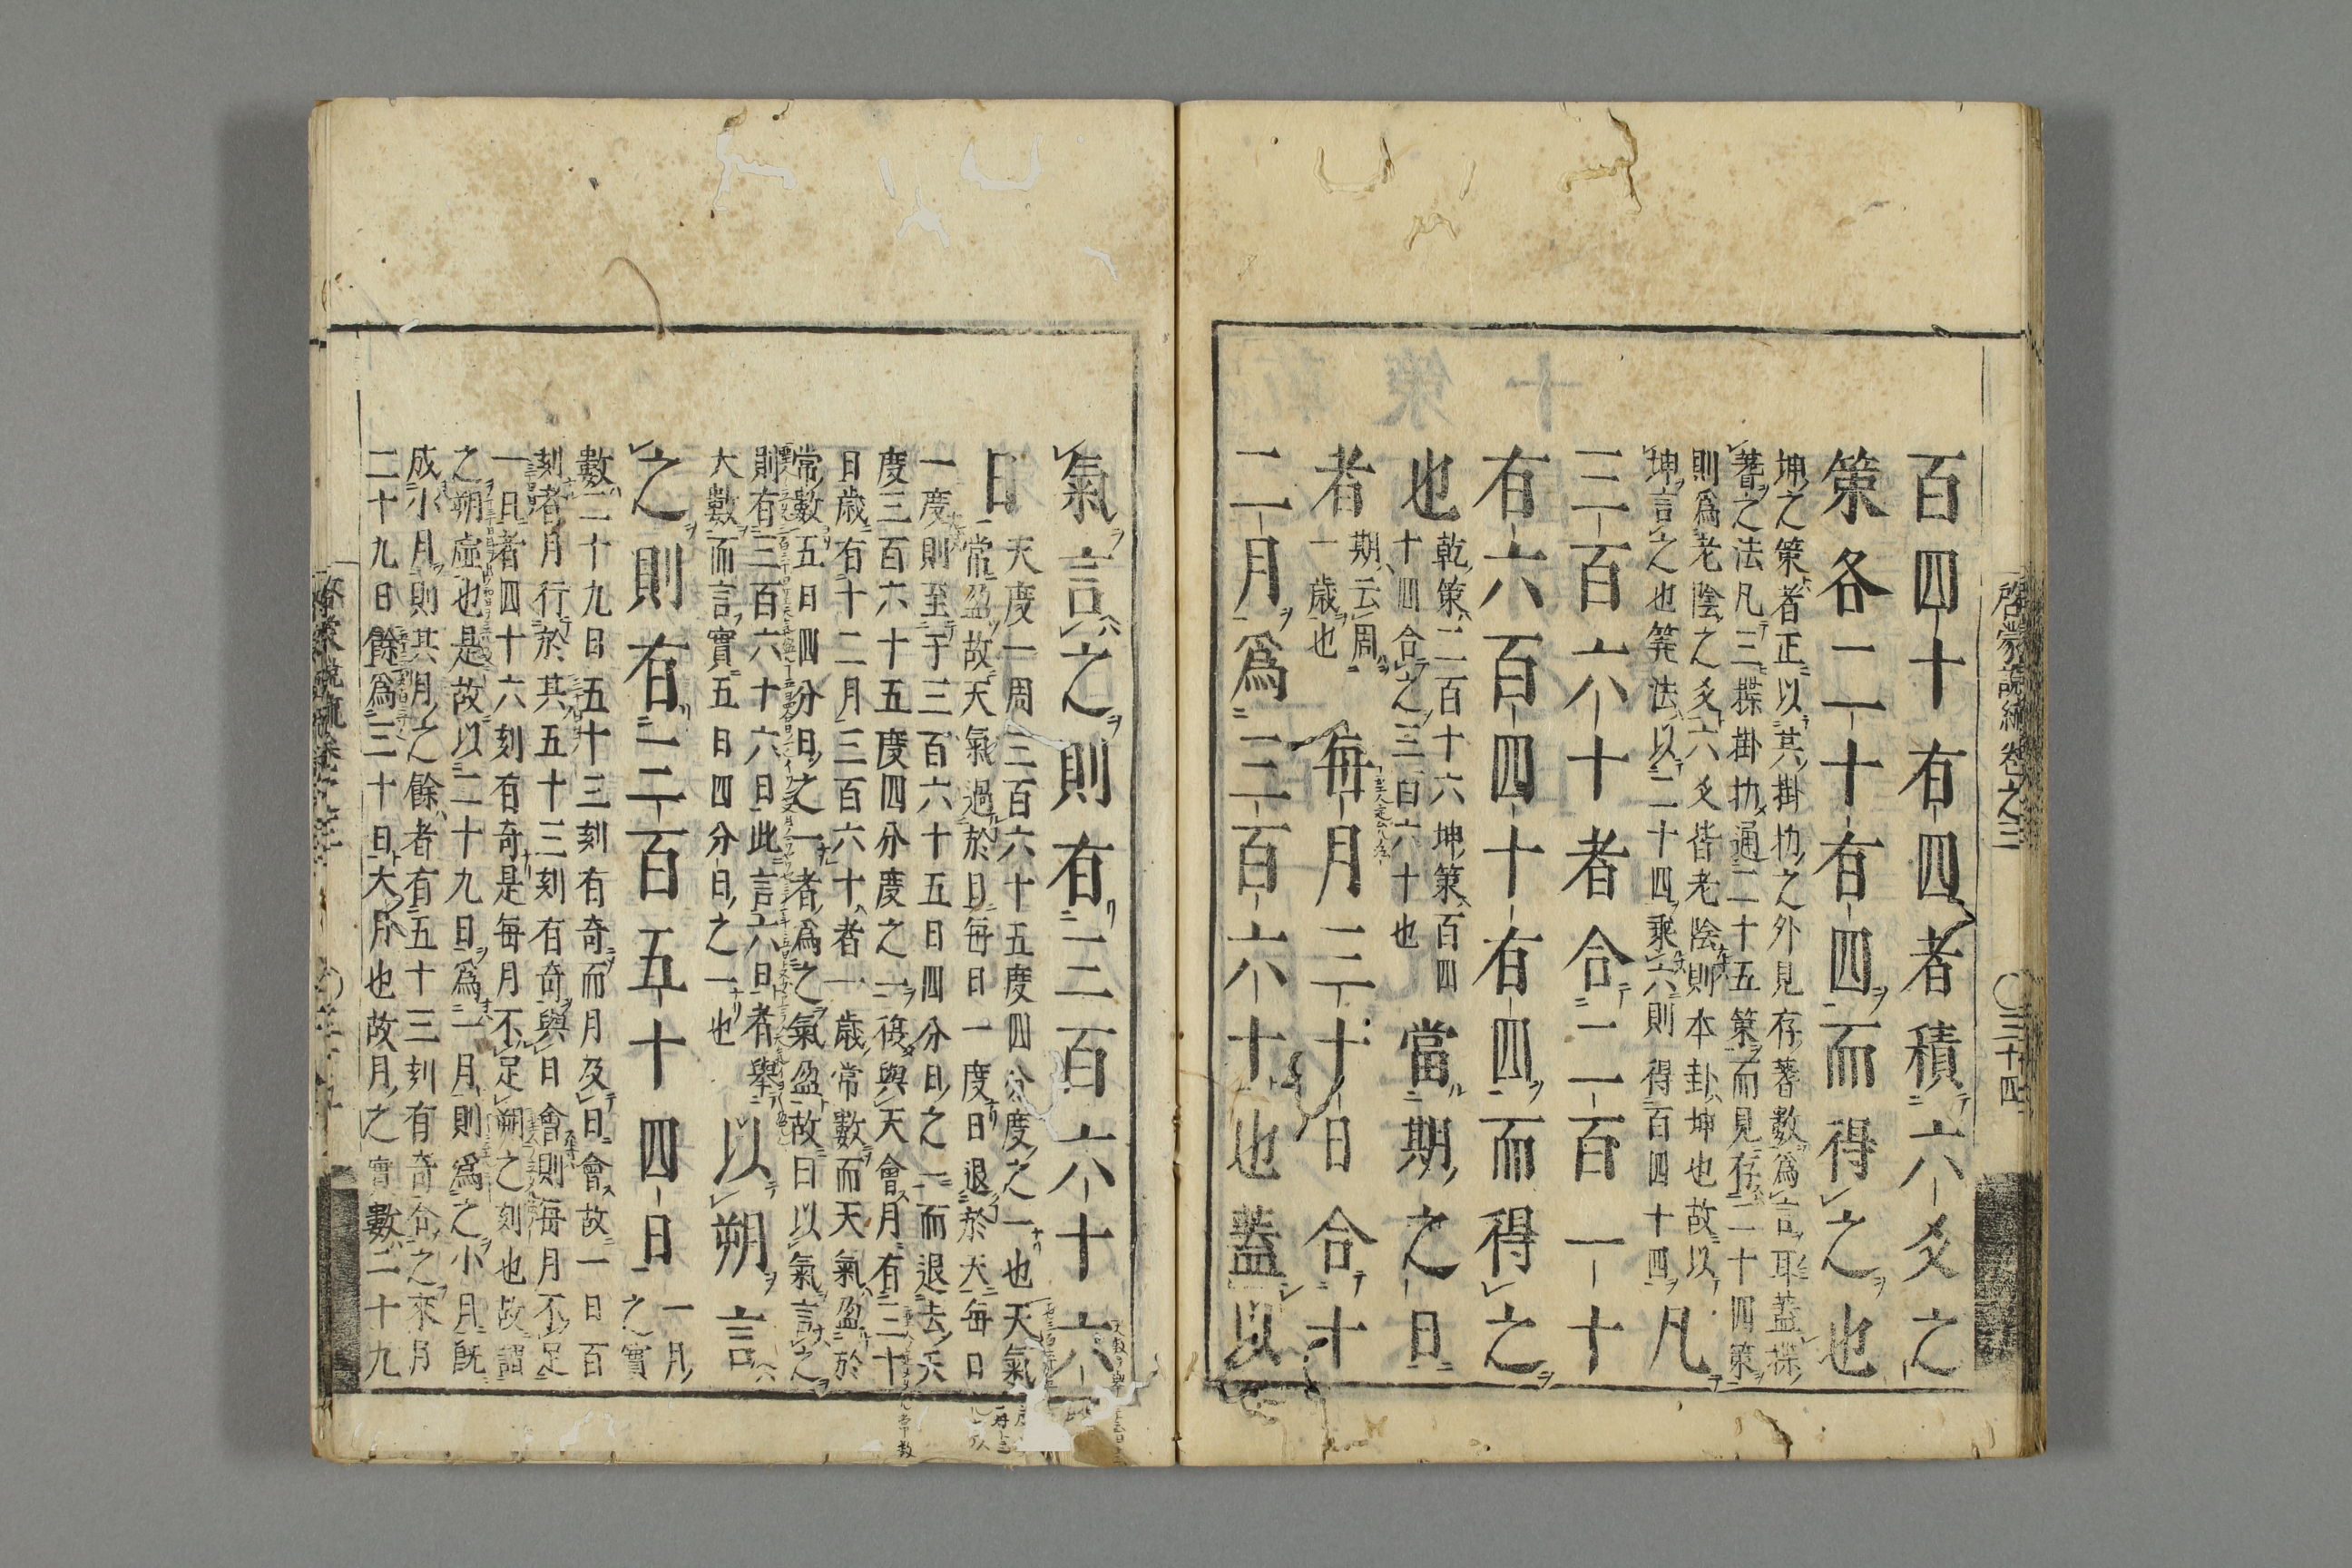 百四十有四者積六爻之
策各二十有四而得之也
坤之策者正以其掛扐之外見存蓍數爲言耳蓋揲
蓍之法凡三揲掛扐通二十五策而見存二十四策
則爲老陰之爻六爻皆老陰則本卦坤也故以
坤言之也筭法以二十四乘六則得百四十四
凡
三百六十者合二百一十
有六百四十有四而得之
也
乾策二百十六坤策百四
十四合之三百六十也
當期之日
者
期云周
一歳也
每月三十日合十
二月爲三百六十也蓋以
啓蒙說統卷之三 〇三十四
氣言之則有三百六十六
日
天度一周三百六十五度四分度之一也天氣
常盈故天氣過於日每日一度日退於天每日
一度則至于三百六十五日四分日之一而退去天
度三百六十五度四分度之一復與天會月有三十
日歳有十二月三百六十者一歳常數而天氣盈於
常數五日四分日之一者爲之氣盈故曰以氣言之
則有三百六十六日此言六日者舉
大數而言實五日四分日之一也
以朔言
之則有三百五十四日
一月
之實
數二十九日五十三刻有奇而月及日會故一日百
刻者月行於其五十三刻有奇與日會則每月不足
一日者四十六刻有奇是每月不足朔之刻也故謂
之朔虛也是故以二十九日爲一月則爲之小月旣
成小月則其月之餘者有五十三刻有奇合之來月
二十九日餘爲三十日大月也故月之實數二十九